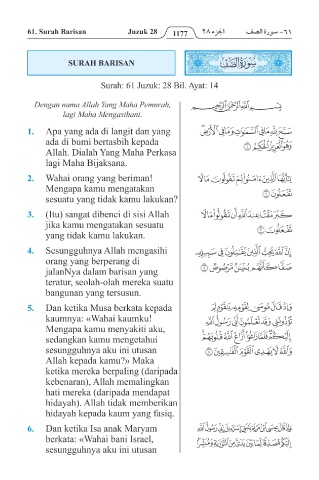 61. Surah Barisan Juzuk 28 1177 الجزء ٢٨ ٦١- سورة الصف
SURAH BARISAN سُورَةُ الصَّفِّ
Surah: 61 Juzuk: 28 Bil. Ayat: 14
Dengan nama Allah Yang Maha Pemurah,
lagi Maha Mengasihani.
بِسْمِ اللَّهِ الرَّحْمَٰنِ الرَّحِيمِ
1. Apa yang ada di langit dan yang
ada di bumi bertasbih kepada
Allah. Dialah Yang Maha Perkasa
lagi Maha Bijaksana.
سَبَّحَ لِلَّهِ مَا فِي السَّمَاوَاتِ وَمَا فِي الْأَرْضِ
وَهُوَ الْعَزِيزُ الْحَكِيمُ ١
2. Wahai orang yang beriman!
Mengapa kamu mengatakan
sesuatu yang tidak kamu lakukan?
يَا أَيُّهَا الَّذِينَ آمَنُوا لِمَ تَقُولُونَ مَا لَا
تَفْعَلُونَ ٢
3. (Itu) sangat dibenci di sisi Allah
jika kamu mengatakan sesuatu
yang tidak kamu lakukan.
كَبُرَ مَقْتًا عِندَ اللَّهِ أَن تَقُولُوا مَا لَا
تَفْعَلُونَ ٣
4. Sesungguhnya Allah mengasihi
orang yang berperang di
jalanNya dalam barisan yang
teratur, seolah-olah mereka suatu
bangunan yang tersusun.
إِنَّ اللَّهَ يُحِبُّ الَّذِينَ يُقَاتِلُونَ فِي سَبِيلِهِ
صَفًّا كَأَنَّهُم بُنْيَانٌ مَّرْصُوصٌ ٤
5. Dan ketika Musa berkata kepada
kaumnya: «Wahai kaumku!
Mengapa kamu menyakiti aku,
sedangkan kamu mengetahui
sesungguhnya aku ini utusan
Allah kepada kamu?» Maka
ketika mereka berpaling (daripada
kebenaran), Allah memalingkan
hati mereka (daripada mendapat
hidayah). Allah tidak memberikan
hidayah kepada kaum yang fasiq.
وَإِذْ قَالَ مُوسَىٰ لِقَوْمِهِ يَا قَوْمِ لِمَ
تُؤْذُونَنِي وَقَد تَّعْلَمُونَ أَنِّي رَسُولُ اللَّهِ
إِلَيْكُمْ فَلَمَّا زَاغُوا أَزَاغَ اللَّهُ قُلُوبَهُمْ
وَاللَّهُ لَا يَهْدِي الْقَوْمَ الْفَاسِقِينَ ٥
6. Dan ketika Isa anak Maryam
berkata: «Wahai bani Israel,
sesungguhnya aku ini utusan
وَإِذْ قَالَ عِيسَى ابْنُ مَرْيَمَ يَا بَنِي إِسْرَائِيلَ إِنِّي رَسُولُ اللَّهِ
إِلَيْكُم مُّصَدِّقًا لِّمَا بَيْنَ يَدَيَّ مِنَ التَّوْرَاةِ وَمُبَشِّرًا